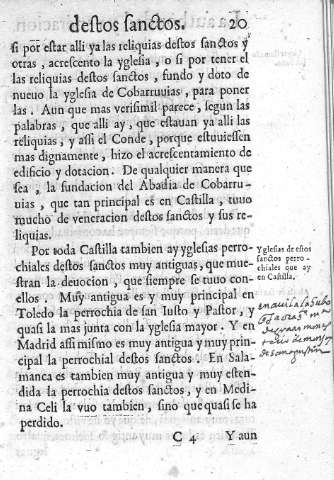 destos sanctos. 20
si por estar alli ya las reliquias destos sanctos y
otras, acrescento la yglesia, o si por tener el
las reliquias destos sanctos, fundo y doto de
nueuo la yglesia de Cobarruuias, para poner
las. Aun que mas verisimil parece, segun las
palabras, que alli ay, que estauan ya alli las
reliquias, y assi el Conde, porque estuuiessen
mas dignamente, hizo el acrescentamiento de
edificio y dotacion. De qualquier manera que
sea, la fundacion del Abadia de Cobarru-
uias, que tan principal es en Castilla, tuuo
mucho de veneracion destos sanctos y sus re-
liquias.
Por toda Castilla tambien ay yglesias perro-
chiales destos sanctos muy antiguas, que mue-
stran la deuocion, que siempre se tuuo con
ellos. Muy antigua es y muy principal en
Toledo la perrochia de san Iusto y Pastor, y
quasi la mas junta con la yglesia mayor. Y en
Madrid assi mismo es antigua y muy princi-
pal la perrochial destos sanctos. En Sala-
manca es tambien muy antigua y muy esten-
dida la perrochia destos sanctos, y en Medi-
na Celi la vuo tambien, sino que quasi se ha
perdido.
Yglesias de estos
sanctos perro-
chiales que ay
en Castilla.
C 4 Y aun